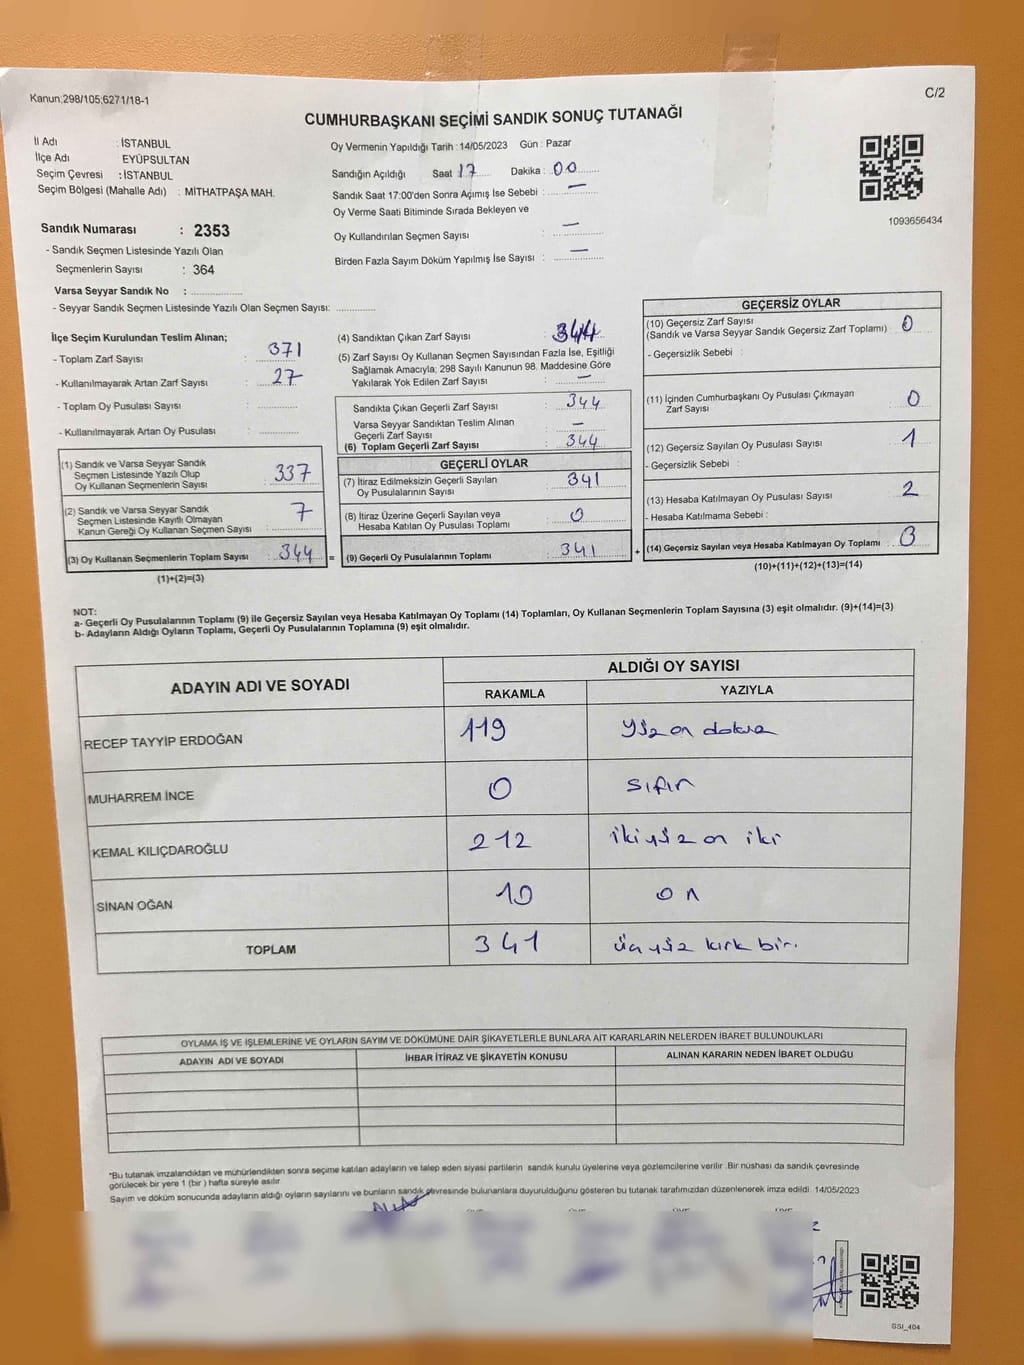 Kanun;298/105;6271/18-1
C/2
CUMHURBAŞKANI SEÇİMİ SANDIK SONUÇ TUTANAĞI
İl Adı : İSTANBUL
İlçe Adı : EYÜPSULTAN
Seçim Çevresi : İSTANBUL
Seçim Bölgesi (Mahalle Adı) : MİTHATPAŞA MAH.
Oy Vermenin Yapıldığı Tarih : 14/05/2023 Gün : Pazar
Sandığın Açıldığı Saat : 17 Dakika : 00
Sandık Saat 17:00'den Sonra Açımış İse Sebebi : —
Oy Verme Saati Bitiminde Sırada Bekleyen ve
Oy Kullandırılan Seçmen Sayısı : —
Birden Fazla Sayım Döküm Yapılmış İse Sayısı : —
1093656434
Sandık Numarası : 2353
- Sandık Seçmen Listesinde Yazılı Olan
Seçmenlerin Sayısı : 364
Varsa Seyyar Sandık No : ..................
- Seyyar Sandık Seçmen Listesinde Yazılı Olan Seçmen Sayısı: .............
İlçe Seçim Kurulundan Teslim Alınan;
- Toplam Zarf Sayısı : 371
- Kullanılmayarak Artan Zarf Sayısı : 27
- Toplam Oy Pusulası Sayısı : .............
- Kullanılmayarak Artan Oy Pusulası : .............
(1) Sandık ve Varsa Seyyar Sandık
Seçmen Listesinde Yazılı Olup
Oy Kullanan Seçmenlerin Sayısı : 337
(2) Sandık ve Varsa Seyyar Sandık
Seçmen Listesinde Kayıtlı Olmayan
Kanun Gereği Oy Kullanan Seçmen Sayısı : 7
(3) Oy Kullanan Seçmenlerin Toplam Sayısı : 344 =
(1)+(2)=(3)
(4) Sandıktan Çıkan Zarf Sayısı : 344
(5) Zarf Sayısı Oy Kullanan Seçmen Sayısından Fazla İse, Eşitliği
Sağlamak Amacıyla; 298 Sayılı Kanunun 98. Maddesine Göre
Yakılarak Yok Edilen Zarf Sayısı : —
Sandıkta Çıkan Geçerli Zarf Sayısı : 344
Varsa Seyyar Sandıktan Teslim Alınan
Geçerli Zarf Sayısı : —
(6) Toplam Geçerli Zarf Sayısı : 344
GEÇERLİ OYLAR
(7) İtiraz Edilmeksizin Geçerli Sayılan
Oy Pusulalarının Sayısı : 341
(8) İtiraz Üzerine Geçerli Sayılan veya
Hesaba Katılan Oy Pusulası Toplamı : 0
(9) Geçerli Oy Pusulalarının Toplamı : 341 +
GEÇERSİZ OYLAR
(10) Geçersiz Zarf Sayısı
(Sandık ve Varsa Seyyar Sandık Geçersiz Zarf Toplamı) : 0
- Geçersizlik Sebebi :
(11) İçinden Cumhurbaşkanı Oy Pusulası Çıkmayan
Zarf Sayısı : 0
(12) Geçersiz Sayılan Oy Pusulası Sayısı : 1
- Geçersizlik Sebebi :
(13) Hesaba Katılmayan Oy Pusulası Sayısı : 2
- Hesaba Katılmama Sebebi :
(14) Geçersiz Sayılan veya Hesaba Katılmayan Oy Toplamı : 3
(10)+(11)+(12)+(13)=(14)
NOT:
a- Geçerli Oy Pusulalarının Toplamı (9) ile Geçersiz Sayılan veya Hesaba Katılmayan Oy Toplamı (14) Toplamları, Oy Kullanan Seçmenlerin Toplam Sayısına (3) eşit olmalıdır. (9)+(14)=(3)
b- Adayların Aldığı Oyların Toplamı, Geçerli Oy Pusulalarının Toplamına (9) eşit olmalıdır.
ADAYIN ADI VE SOYADI ALDIĞI OY SAYISI
RAKAMLA YAZIYLA
RECEP TAYYİP ERDOĞAN 119 Yüz on dokuz
MUHARREM İNCE 0 sıfır
KEMAL KILIÇDAROĞLU 212 ikiyüz on iki
SİNAN OĞAN 10 on
TOPLAM 341 üçyüz kırk bir.
OYLAMA İŞ VE İŞLEMLERİNE VE OYLARIN SAYIM VE DÖKÜMÜNE DAİR ŞİKAYETLERLE BUNLARA AİT KARARLARIN NELERDEN İBARET BULUNDUKLARI
ADAYIN ADI VE SOYADI İHBAR İTİRAZ VE ŞİKAYETİN KONUSU ALINAN KARARIN NEDEN İBARET OLDUĞU
*Bu tutanak imzalandıktan ve mühürlendikten sonra seçime katılan adayların ve talep eden siyasi partilerin sandık kurulu üyelerine veya gözlemcilerine verilir .Bir nüshası da sandık çevresinde
görülecek bir yere 1 (bir ) hafta süreyle asılır
Sayım ve döküm sonucunda adayların aldığı oyların sayılarını ve bunların sandık çevresinde bulunanlara duyurulduğunu gösteren bu tutanak tarafımızdan düzenlenerek imza edildi. 14/05/2023
SSI_404